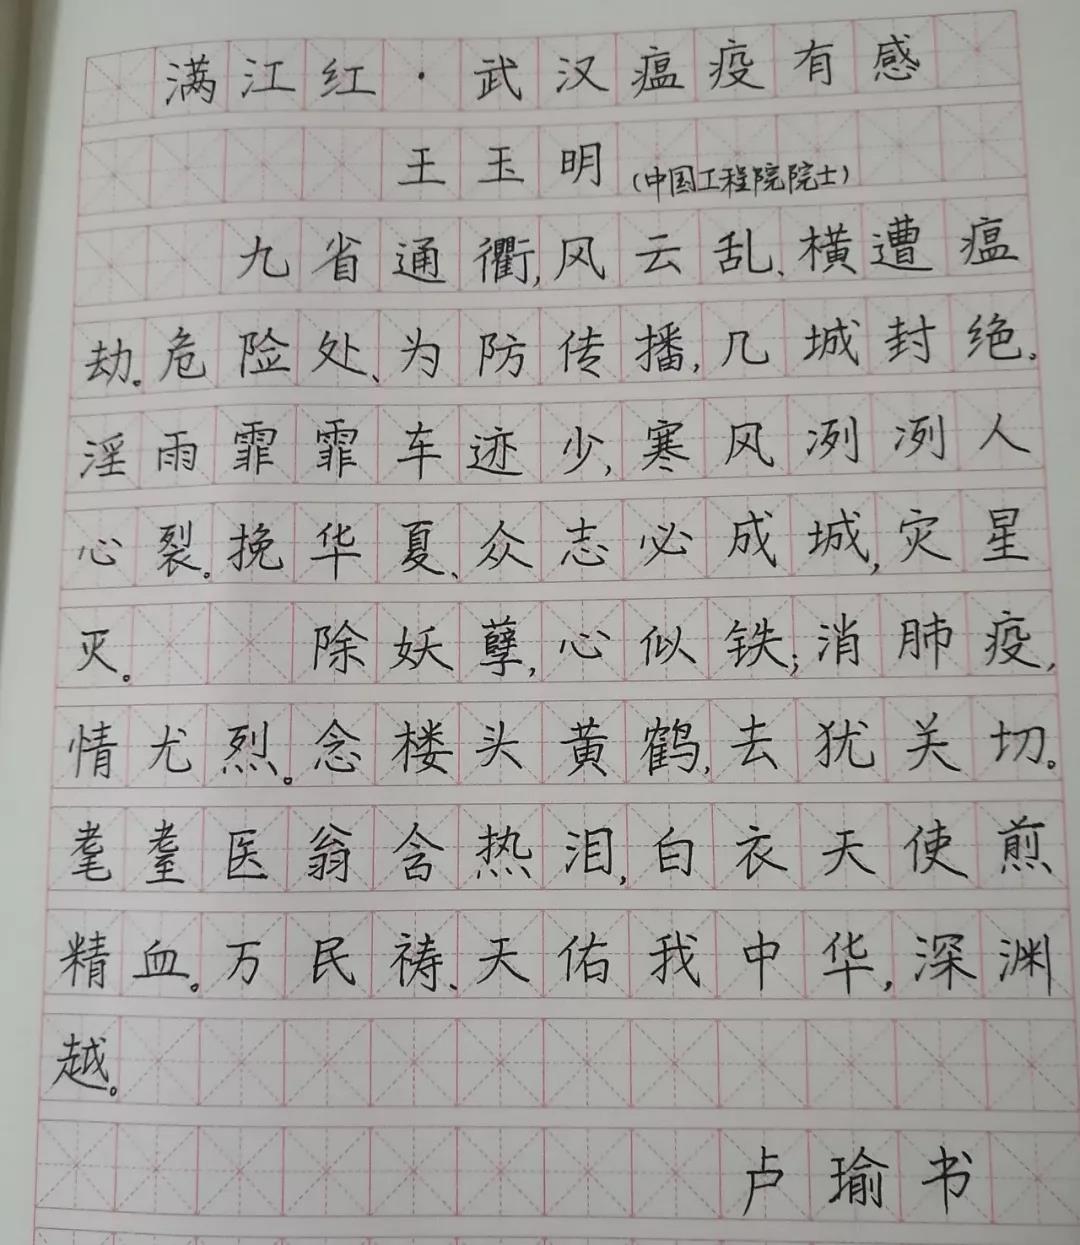 满江红·武汉瘟疫有感
王玉明(中国工程院院士)
九省通衢,风云乱、横遭瘟
劫。危险处、为防传播,几城封绝。
淫雨霏霏车迹少,寒风冽冽人
心裂。挽华夏、众志必成城,灾星
灭。 除妖孽,心似铁;消肺疫,
情尤烈。念楼头黄鹤,去犹关切。
耄耋医翁含热泪,白衣天使煎
精血。万民祷、天佑我中华,深渊
越。
卢瑜书